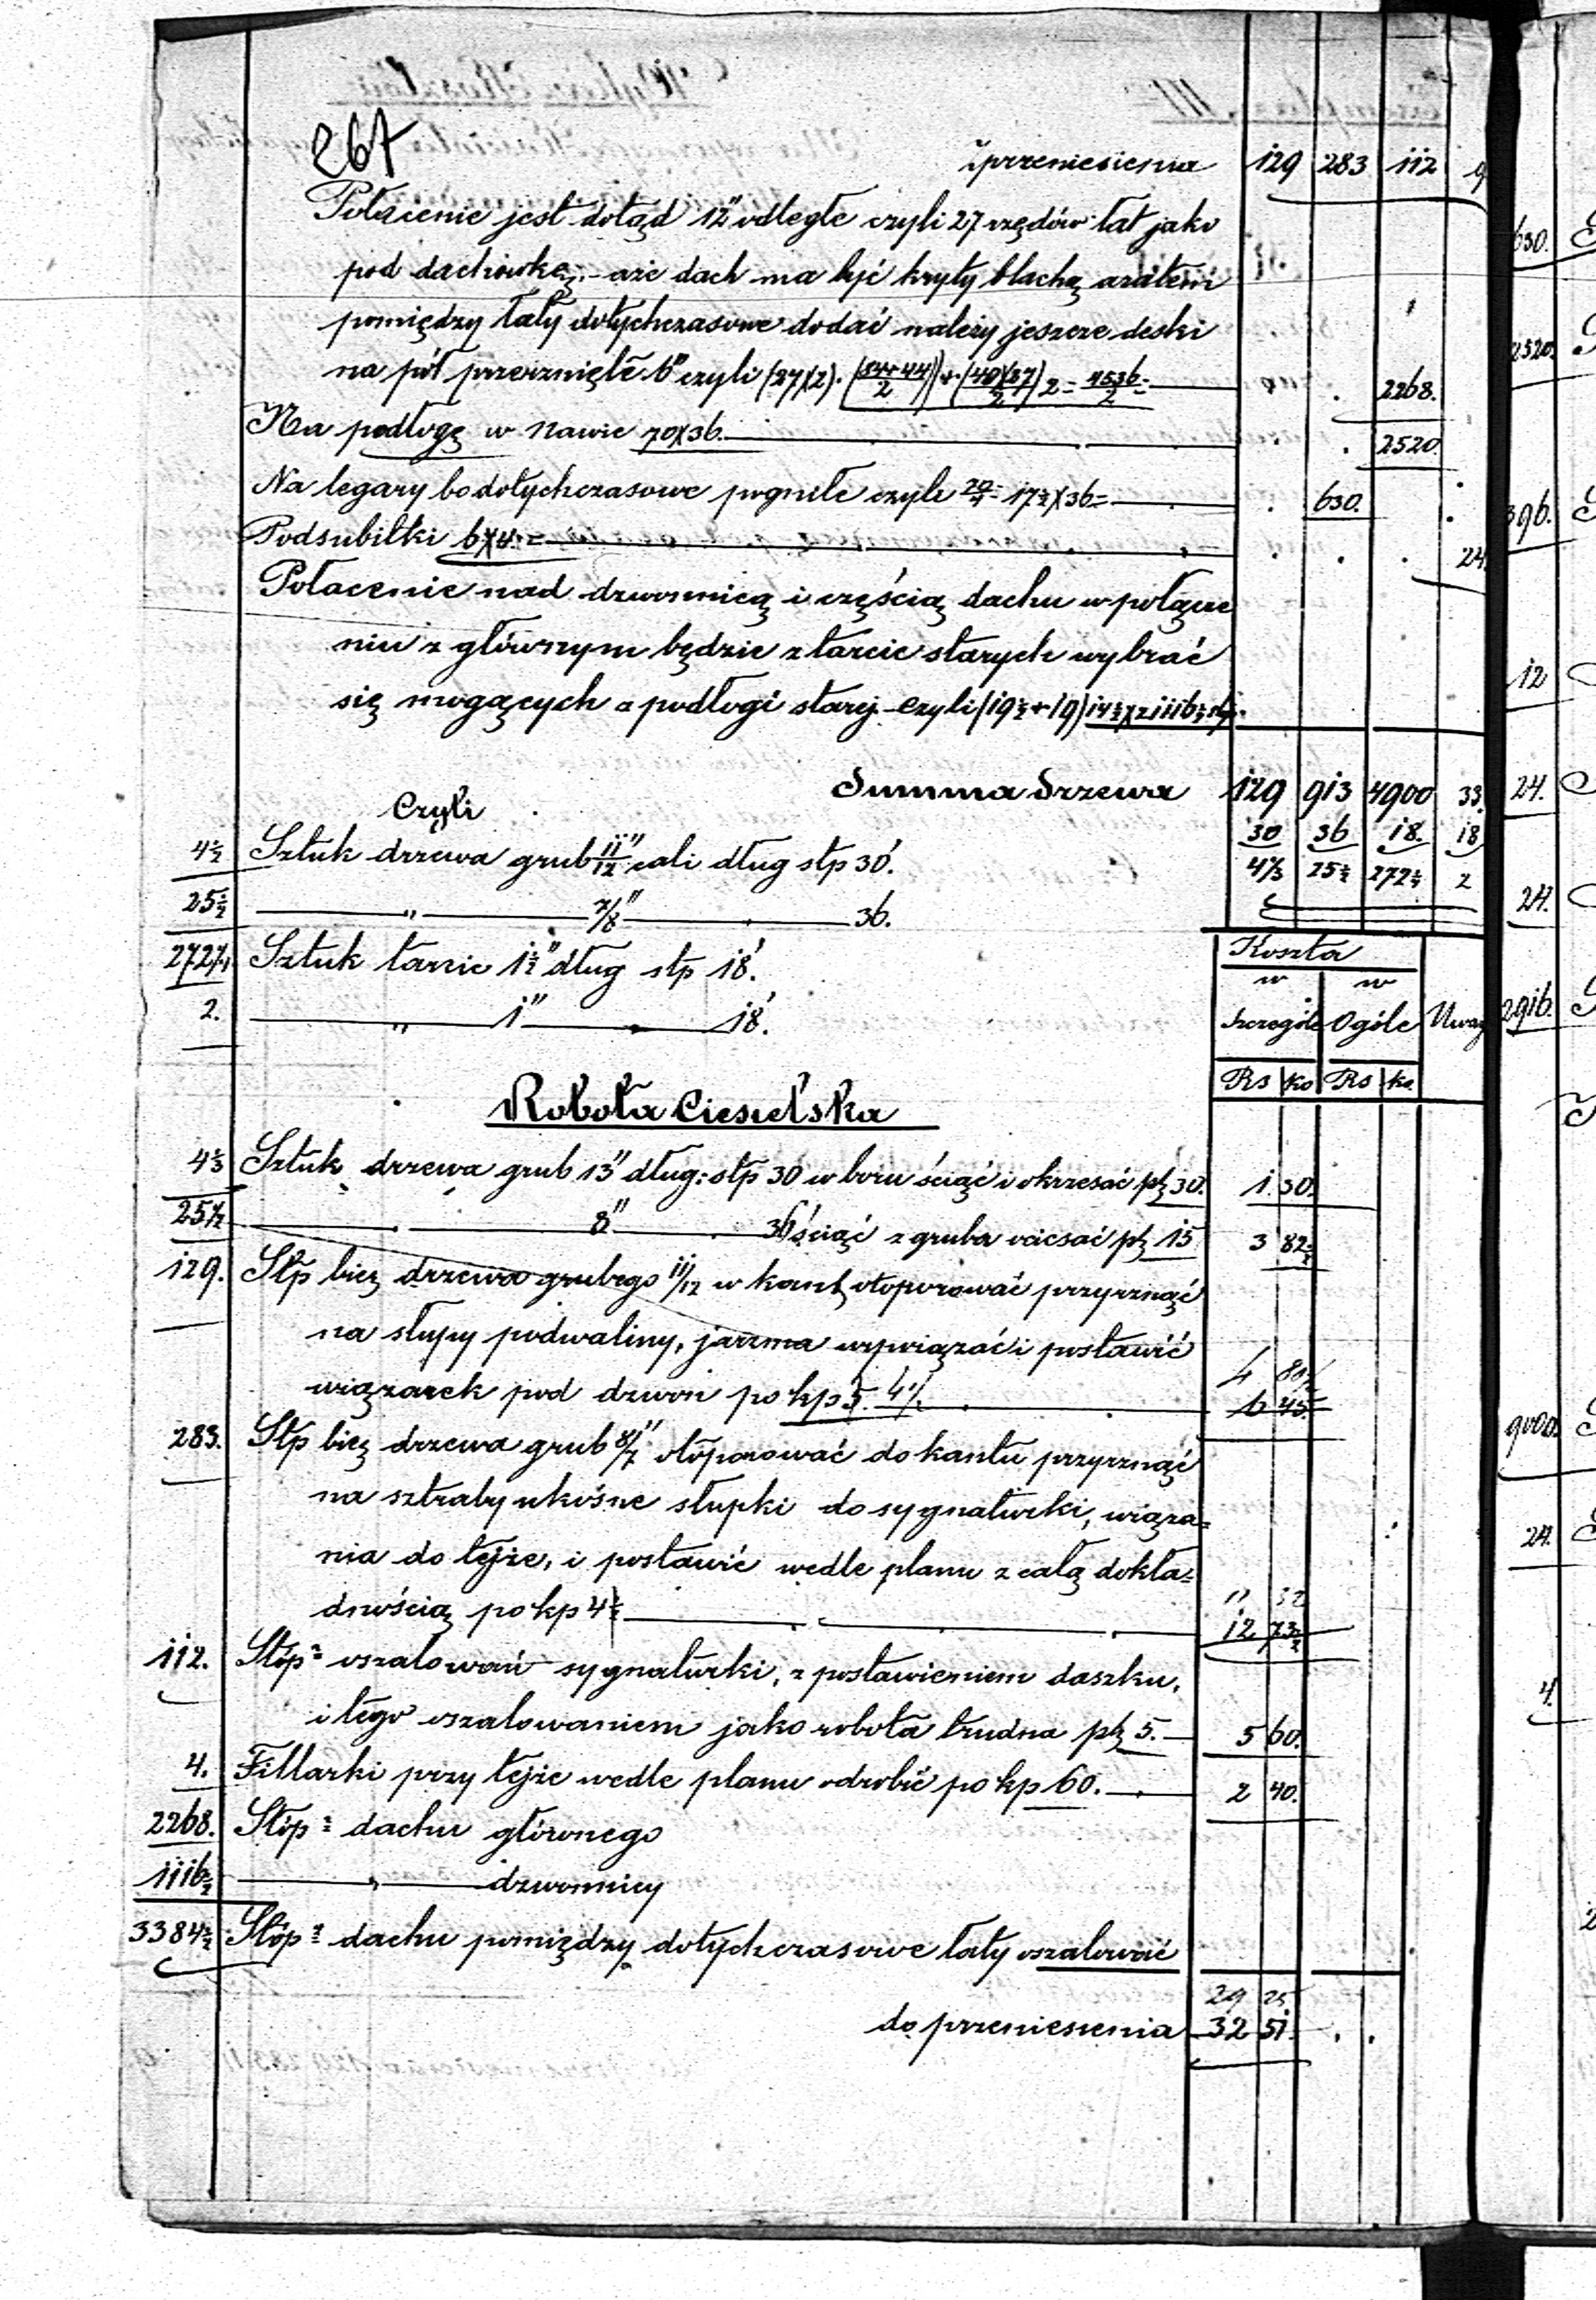 267
z przeniesienia 129 283 112 9
Połacenie jest dotąd 12" odległe czyli 27 rzędów łat jako
pod dachówkę; – a że dach ma być kryty blachą a zatem
pomiędzy łaty dotychczasowe dodać należy jeszcze deski
na pół przerznięte 6" czyli (27)(2). (84+44/2) + (40)(27)/2 2 = 4536/2 = 2268.
Na podłogę w Nawie 70X36. 2520.
Na legary bo dotychczasowe pogniłe czyli 70/4 = 17½X36= 630.
Podsubitki 6X4 = 24.
Połacenie nad dzwonnicą i częścią dachu w połącze
niu z głównym będzie z tarcic starych wybrać
się mogących a podłogi starej czyli (19½+19)
Summa Drzewa 129 913 4900 33.
Czyli 30 36 18. 18
4⅓ Sztuk drzewa grub 11/12" cali dług stp 30'. 4⅓ 25½ 272¼ 2
25½ — „ — 7/8" — 36.
272¼ Sztuk tarcic 1½" dług stp 18'.
2. — „ — 1" — 18'.
Koszta
w w
Szczególe Ogóle Uwag
Rs ko Rs ko.
Robota Ciesielska
4⅓ Sztuk drzewa grub 13" dług: stp 30 w boru ściąć i okrzesać pk 30. 1 30.
25½ — 8" — 36' ściąć z gruba ociesać pk 15 3 82½
129. Stp bież drzewa grubego 11/12 w kant otoporować przyrznąć
na słupy podwaliny, jarzma wpwiązać i postawić
wiązarek pod dzwon po kp 5. 4½ 6 45.
283. Stp bież drzewa grub 8/7" otoporować do kantu przyrznąć
na sztraby ukośne słupki do sygnaturki, wiąza=
nia do tejże, i postawić wedle planu z całą dokła=
dnością po kp 4½ 11 32
12 73½
112. Stóp² oszalowań sygnaturki, z postawieniem daszku,
i tego oszalowaniem jako robota trudna pk 5. 5 60.
4. Fillarki przy tejże wedle planu odrobić po kp 60. 2 40.
2268. Stóp² dachu głównego
1116½ — „ — dzwonnicy
3384½ Stóp² dachu pomiędzy dotychczasowe łaty oszalować
29 25
do przeniesienia 32 51.
630.
2520.
396.
12
24.
24.
2916.
9000.
24.
4.